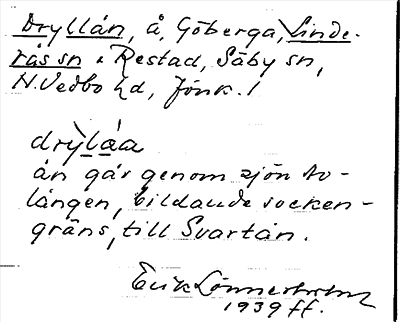 Dryllån, å, Göberga, Linde-
rås sn & Restad, Säby sn,
N. Vedbo hd, Jönk. l
drỳlåa
ån går genom sjön No-
lången, bildande socken-
gräns, till Svartån.
Erik Lönnerholm
1939 ff.